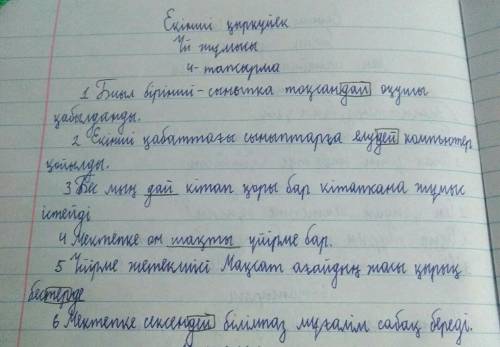 Екінші қыркүйек
Үй жұмысы
4-тапсырма
1 Биыл бірінші-сыныпқа тоқсандай оқушы
қабылданды.
2 Екінші қабаттағы сыныптарға елудей компьютер
қойылды.
3 Бес мың дай кітап қоры бар кітапхана жұмыс
істейді
4 Мектепке он шақты үйірме бар.
5 Үйірме жетекшісі Мақсат ағайдың жасы қырық
бестерде
6 Мектепке сексендей білімпаз мұғалім сабақ береді.